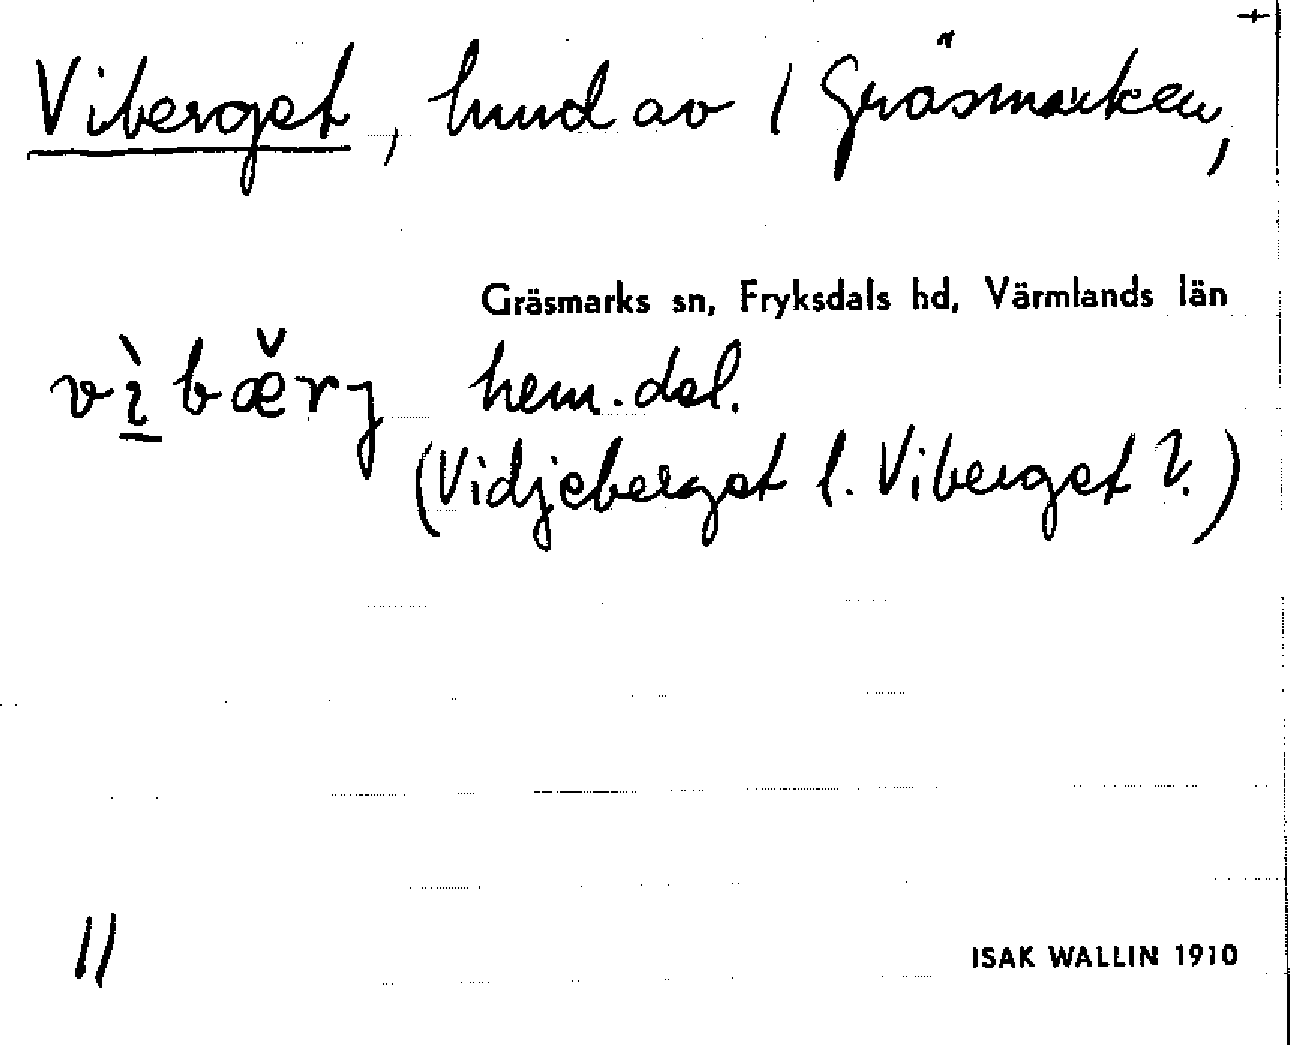 +
Viberget, hmd av 1 Gräsmarken,
Gräsmarks sn, Fryksdals hd, Värmlands län
vìbæ̌rj hem.del.
(Vidjeberget l. Viberget?)
11
ISAK WALLIN 1910